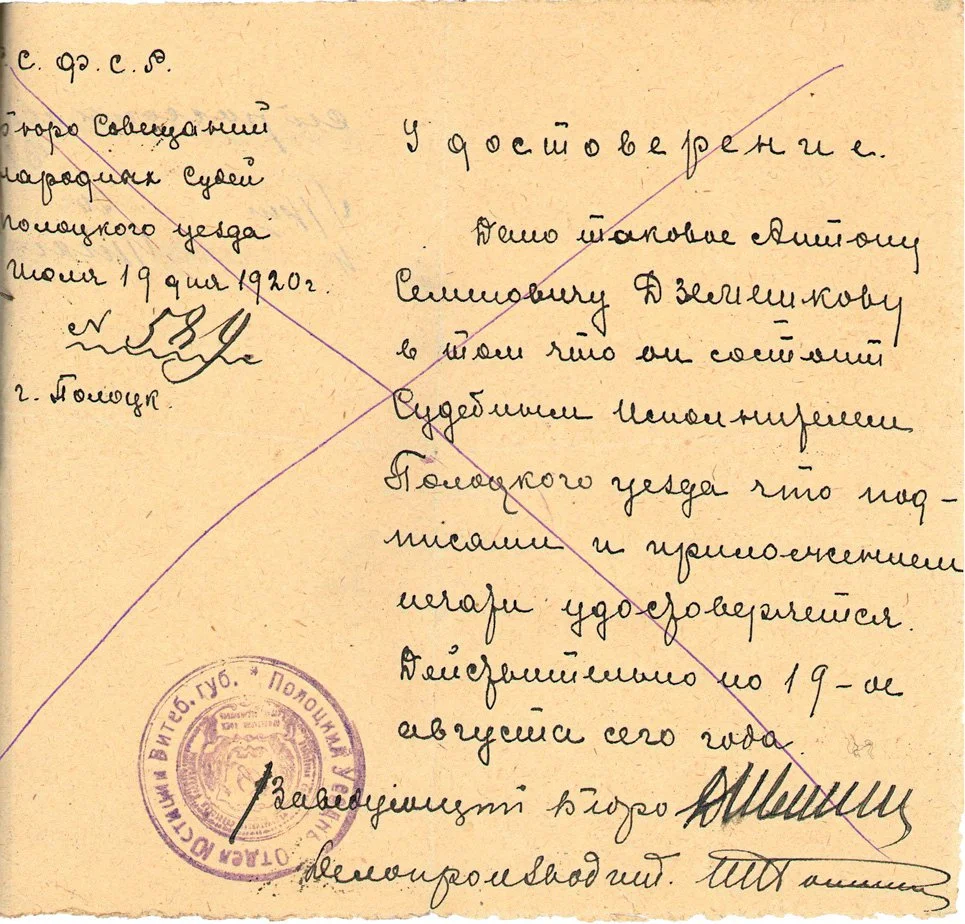 С. Ф. С. Р.
Бюро Совещаний
Народных Судей
Полоцкого уезда
Июля 19 дня 1920 г.
№ 589
г. Полоцк.
Удостоверение.
Дано таковое Антону
Семеновичу Дземешкову
в том что он состоит
Судебным Исполнителем
Полоцкого уезда что под-
писами и приложением
печати удостоверяется.
Действительно по 19-ое
августа сего года.
Заведующий Бюро
Делопроизводит.
* Полоцкий Уездн. Отдел Юстиции Витеб. губ.